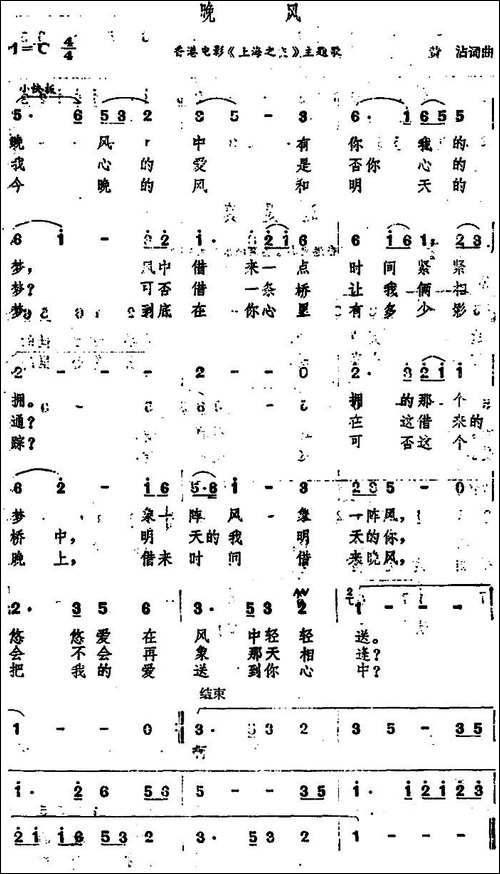 晚 风
1=C 4/4 香港电影《上海之夜》主题歌 黄 沾词曲
小快板
5· 6 5 3 2 3 5 - 3 6· 1 6 5 5
晚 风 中 有 你 我 的
我 心 的 爱 是 否 你 心 的
今 晚 的 风 和 明 天 的
6 1 - 2 2 1· 2 1 6 6 1 6 1, 2 3
梦, 风 中 借 来 一 点 时 间 紧 紧
梦? 可 否 借 一 条 桥 让 我 俩 相
梦 到 底 在 你 心 里 有 多 少 影
2 - - - 2 - - 0 2· 2 2 1 1
拥。 拥 的 那 个
通? 在 这 借 来 的
踪? 可 否 这 个
6 2 - 1 6 5· 6 1 - 3 2 3 5 - 0
梦 象 一 阵 风 象 一 阵 风,
桥 中, 明 天 的 我 明 天 的 你,
晚 上, 借 来 时 间 借 来 晚 风,
2· 3 5 6 3· 5 3 2 1 - - -
悠 悠 爱 在 风 中 轻 轻 送。
会 不 会 再 象 那 天 相 逢?
把 我 的 爱 送 到 你 心 中?
结束
1 - - 0 3· 5 3 2 3 5 - 3 5
1· 2 6 5 6 5 - - 3 5 1· 1 2 1 2 3
2 1 1 6 5 3 2 3· 5 3 2 1 - -